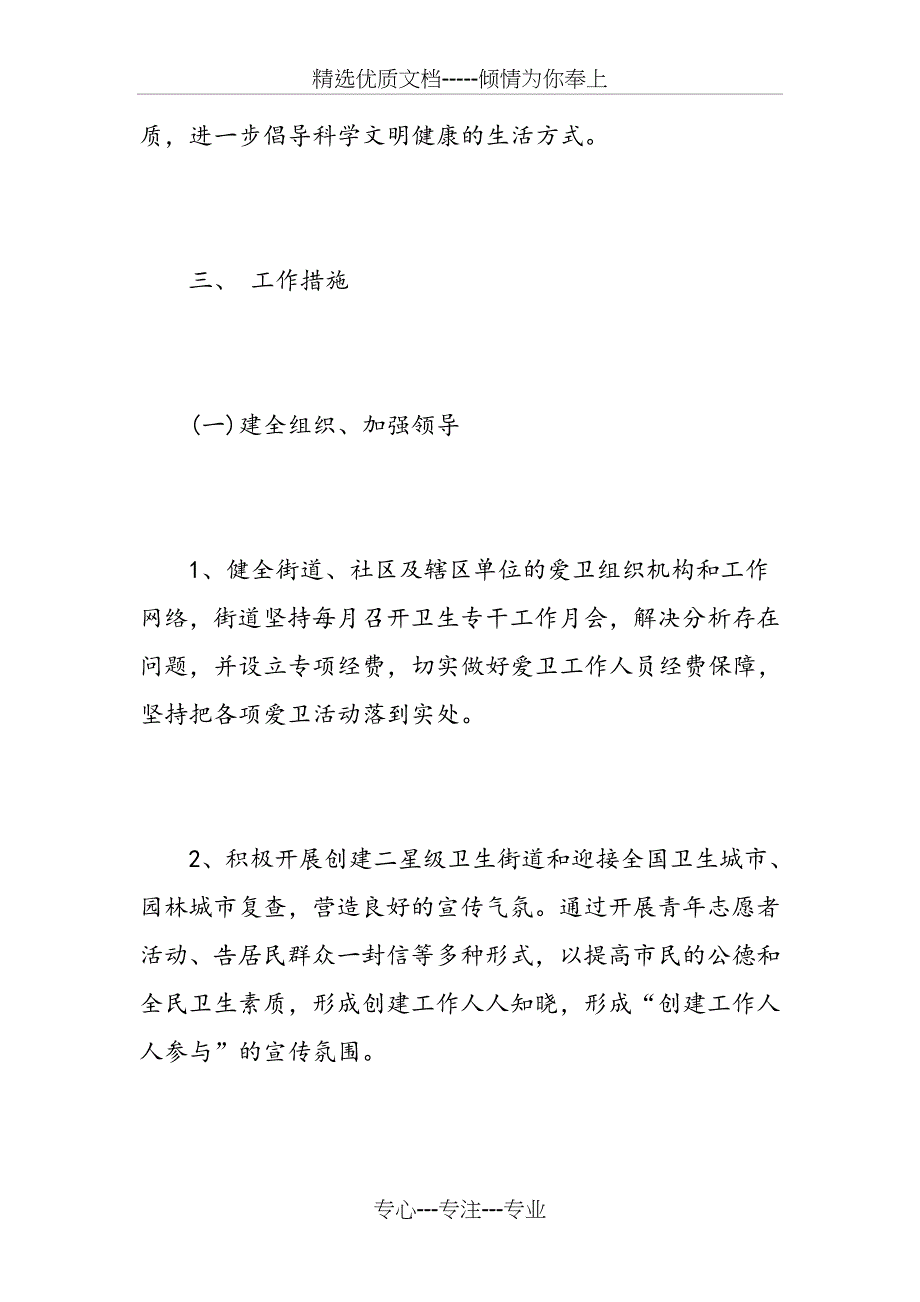 精选优质文档-----倾情为你奉上
质，进一步倡导科学文明健康的生活方式。
三、 工作措施
(一)建全组织、加强领导
1、健全街道、社区及辖区单位的爱卫组织机构和工作
网络，街道坚持每月召开卫生专干工作月会，解决分析存在
问题，并设立专项经费，切实做好爱卫工作人员经费保障，
坚持把各项爱卫活动落到实处。
2、积极开展创建二星级卫生街道和迎接全国卫生城市、
园林城市复查，营造良好的宣传气氛。通过开展青年志愿者
活动、告居民群众一封信等多种形式，以提高市民的公德和
全民卫生素质，形成创建工作人人知晓，形成“创建工作人
人参与”的宣传氛围。
专心---专注---专业